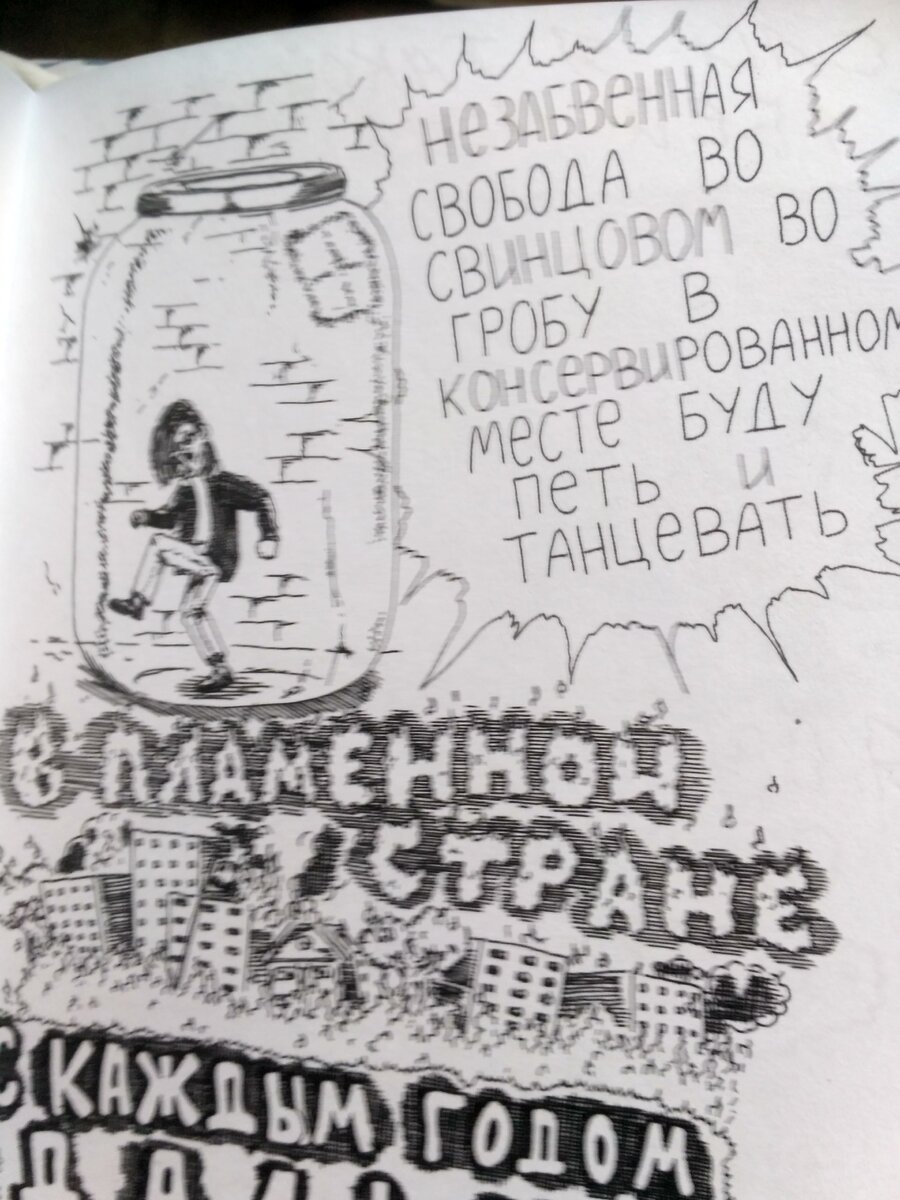 НЕЗАБВЕННАЯ
СВОБОДА ВО
СВИНЦОВОМ ВО
ГРОБУ В
КОНСЕРВИРОВАННОМ
МЕСТЕ БУДУ
ПЕТЬ И
ТАНЦЕВАТЬ
В ПЛАМЕННОЙ
СТРАНЕ
С КАЖДЫМ ГОДОМ